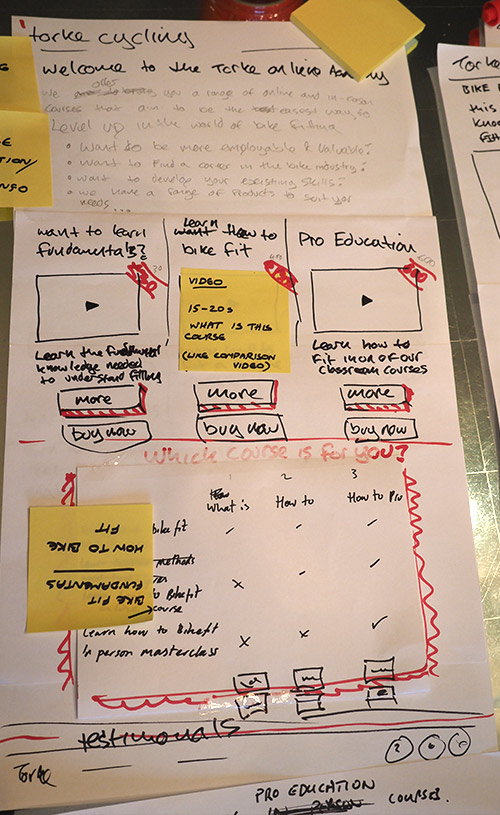 torke cycling
Welcome to the Torke online Academy
offer
We you a range of online and in-person
courses that aim to be the easiest way to
Level up in the world of bike fitting
• Want to be more employable & valuable?
• Want to find a career in the bike industry?
• Want to develop your existing skills?
• We have a range of products to suit your
needs...
Want to learn
fundamentals?
Learn
want How to
bike fit
Pro Education
30
VIDEO
15-20s
WHAT IS THIS
COURSE
(LIKE COMPARISON
VIDEO)
Learn the fundamental
knowledge needed
to understand fitting
Learn how to
fit in one of our
classroom courses
more
more
more
buy now
buy now
buy now
Which course is for you?
1 2 3
What is
How to
How to Pro
bike fit
methods
Bikefit
course
HOW TO BIKE
FIT
BIKE FIT
FUNDAMENTAS
Learn how to Bikefit
In person masterclass
testimonals
Torke
PRO EDUCATION
IN PERSON COURSES.
INFO
Torke
BIKE F
this
Know
fit